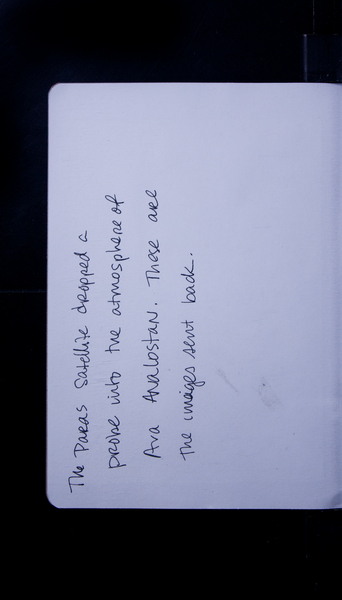 The Paras Satellite dropped a
probe into the atmosphere of
Ava Analostan. These are
the images sent back.